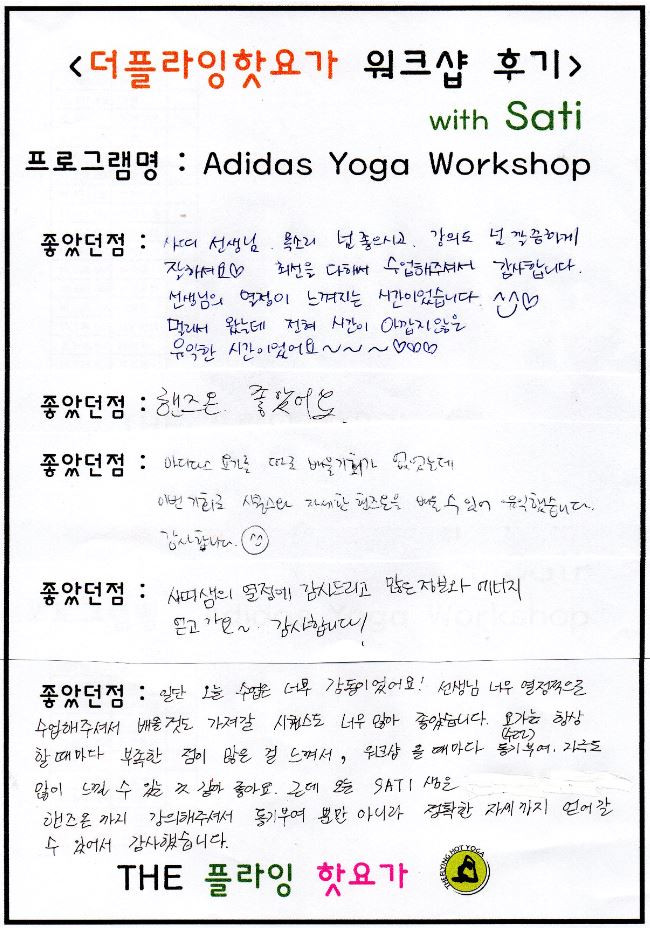 <더플라잉핫요가 워크샵 후기>
with Sati
프로그램명 : Adidas Yoga Workshop
좋았던점 : 사띠 선생님. 목소리 넘 좋으시고. 강의도 넘 깔끔하게
잘하셔요♡ 최선을 다해서 수업해주셔서 감사합니다.
선생님의 열정이 느껴지는 시간이었습니다. ^^♡
멀리서 왔는데 전혀 시간이 아깝지않은
유익한 시간이었어요~~~♡♡♡
좋았던점 : 핸즈온. 좋았어요.
좋았던점 : 아디다스 요가를 따로 배울기회가 없었는데
이번 기회로 시퀀스와 자세한 핸즈온을 배울 수 있어 유익했습니다.
감사합니다. ^^
좋았던점 : 사띠샘의 열정에 감사드리고 많은정보와 에너지
얻고가요~. 감사합니다!
좋았던점 : 일단 오늘 수업은 너무 감동이었어요! 선생님 너무 열정적으로
수업해주셔서 배울것도 가져갈 시퀀스도 너무 많아 좋았습니다. 요가는 항상
할때마다 부족한 점이 많은 걸 느껴서, 워크샵 을 때마다 동기부여. 자극도
많이 느낄 수 있는 것 같아 좋아요. 근데 오늘 SATI 샘은
핸즈온까지 강의해주셔서 동기부여 뿐만 아니라 정확한 자세까지 얻어갈
수 있어서 감사했습니다.
THE 플라잉 핫요가
THE FLYING HOT YOGA